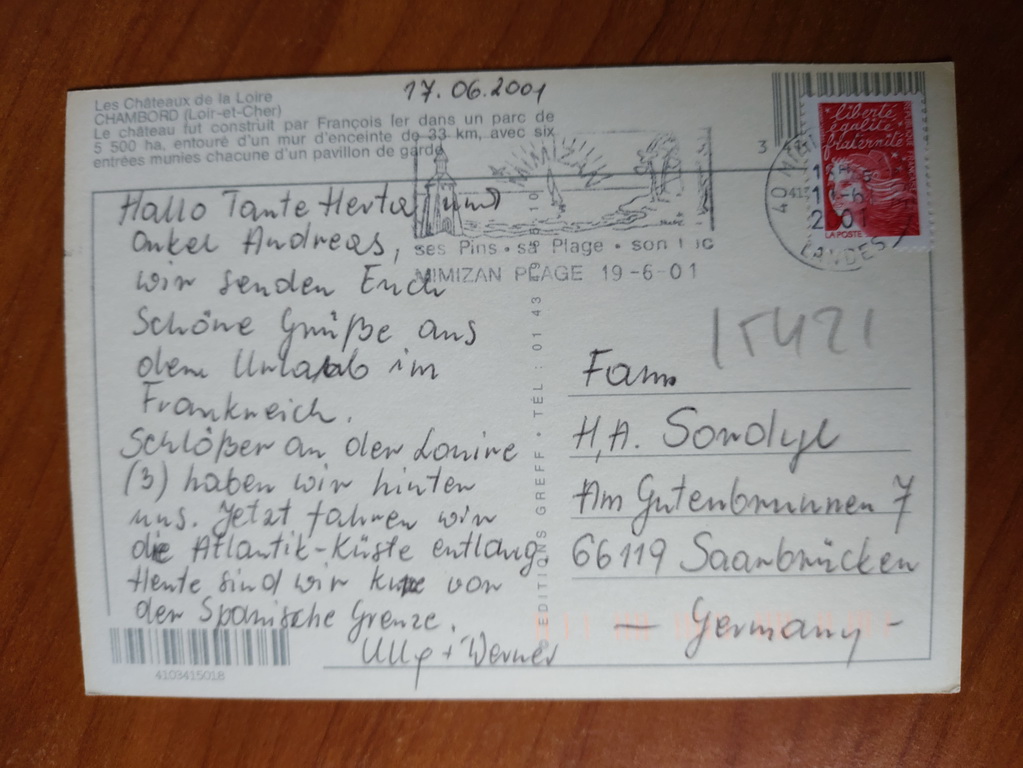 Les Châteaux de la Loire
CHAMBORD (Loir-et-Cher)
Le château fut construit par François Ier dans un parc de
5 500 ha, entouré d'un mur d'enceinte de 33 km, avec six
entrées munies chacune d'un pavillon de garde
17.06.2001
Hallo Tante Herta (und)
Onkel Andreas,
wir senden Euch
Schöne Grüße aus
dem Urlaub in
Frankreich.
Schlößer an der Louire
(3) haben wir hinter
uns. Jetzt fahren wir
die Atlantik-Küste entlang.
Heute sind wir kurz vor
der Spanische Grenze.
Ully + Werner
4103415018
EDITIONS GREFF • TÉL : 01 43
ses Pins • sa Plage • son
MIMIZAN PLAGE 19-6-01
liberté
égalité
fraternité
LA POSTE
40
LANDES
15421
Fam.
H, A. Sondyl
Am Gutenbrunnen 7
66119 Saarbrücken
— Germany -